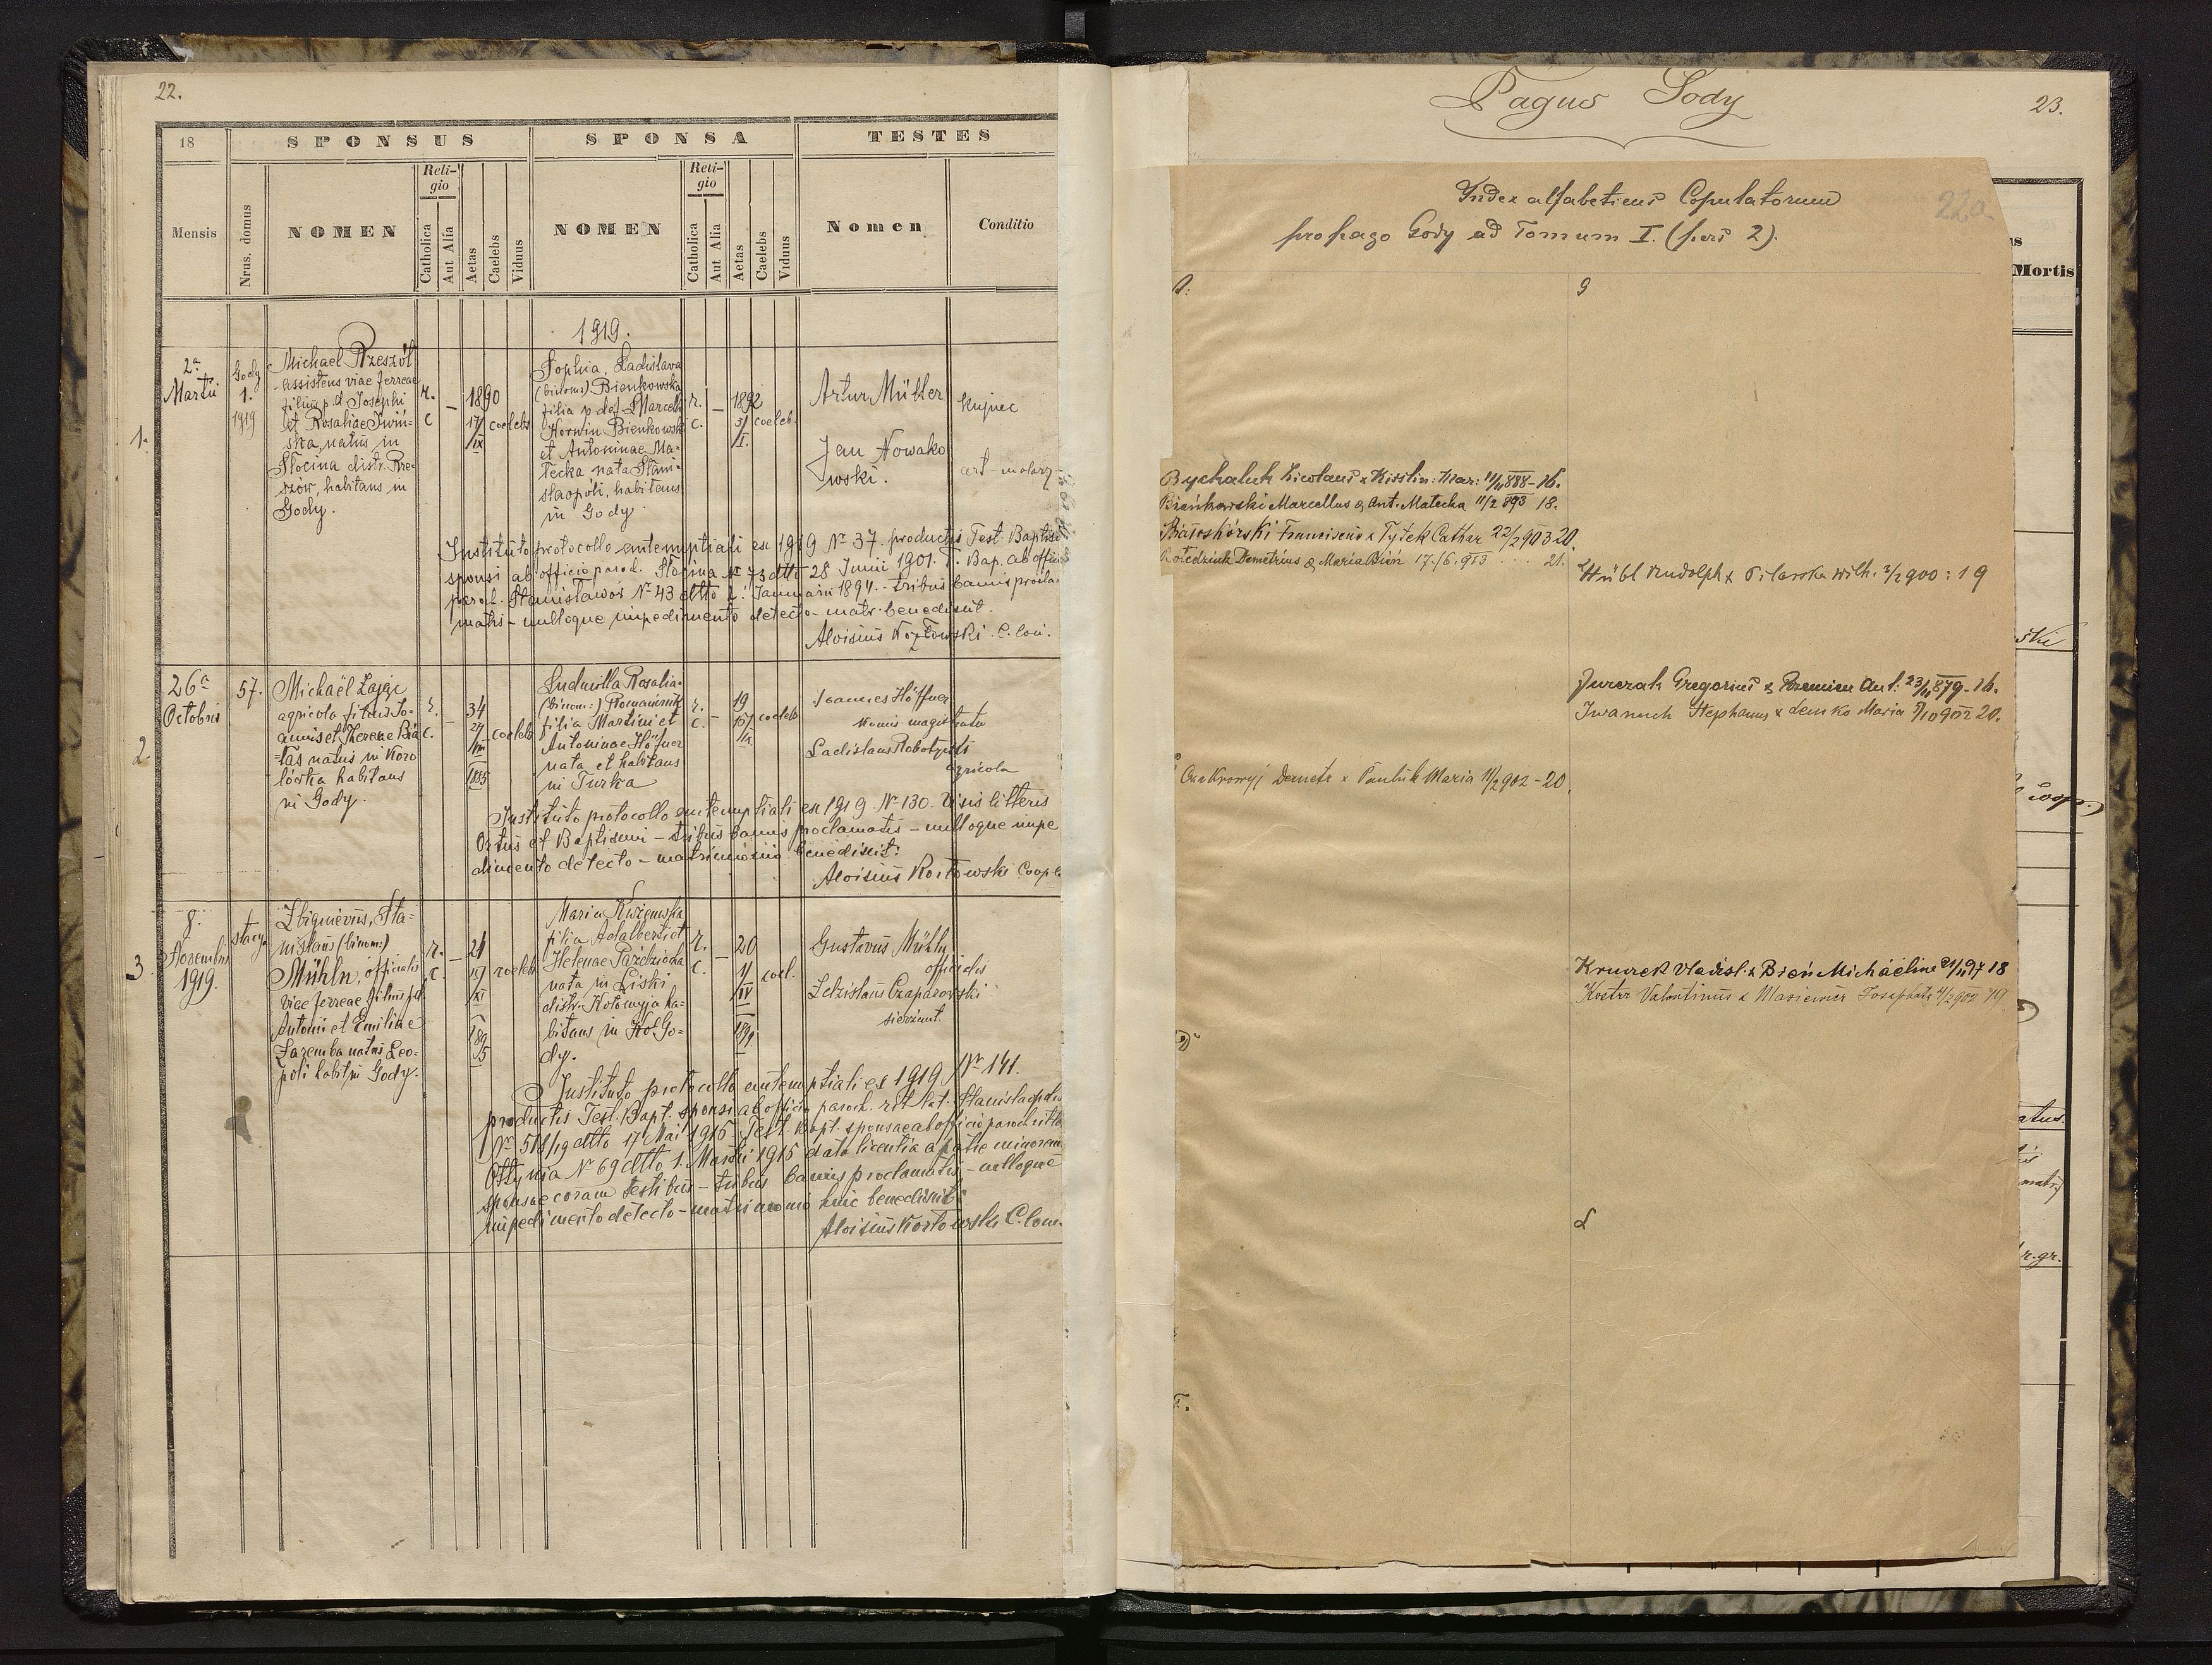 22.
18
SPONSUS
SPONSA
TESTES
Mensis
Nrus. domus
NOMEN
Reli-
gio
Catholica
Aut Alia
Aetas
Caelebs
Viduus
NOMEN
Reli-
gio
Catholica
Aut Alia
Aetas
Caelebs
Viduus
Nomen
Conditio
1919.
1.
2a
Martii
Gody
1.
1919
Michael Rzeszót
assistens viae ferreae
filius p. d. Josephi
et Rosaliae Iwiń-
ska, natus in
Słocina distr. Rze-
szów, habitans in
Gody.
r.
c
–
1890
17/
IX
coelebs
Sophia, Ladislava
(binom:) Bienkowska
filia p. def. Marcelli
Korwin Bienkowski
et Antoninae Ma-
łecka nata Stani-
slaopoli, habitans
in Gody.
r.
c.
–
1892
3/
I.
coeleb.
Artur Müller
kupiec
Jan Nowako
wski.
art-malarz
Instituto protocollo antenuptiali ex 1919 Nr 37. productis Test. Baptism
sponsi ab officio paroch. Słocina Nr 73 dtto 28 Junii 1901. T. Bap. ab officio
paroch. Stanisławów Nr 43 dtto 2. Januarii 1894. – tribus bannis procla-
matis – nulloque impedimento detecto – matr. benedixit.
Aloisius Kozłowski C. loci.
2.
26a
Octobris
57.
Michaël Zając
agricola filius Jo-
annis et Therese Bia
łas natus in Koro
lówka habitans
in Gody.
r.
c.
–
34
27
VIII
1885
coelebs
Ludmilla Rosalia
(binom:) Romaniuk
filia Martini et
Antoninae Höfner
nata et habitans
in Turka
r.
c.
–
19
15/
IX
coeleb
Joannes Höffner
komis. magistratu
Ladislaus
agricola
Instituto protocollo antenuptiali ex 1919. Nr 130. Visis litteris
Ortus et Baptismi – tribus bannis proclamatis – nulloque impe
dimento detecto – matrimonio benedixit:
Aloisius Kozłowski Coop.
3.
8.
Novembris
1919.
stacya
Zbignievus, Sta-
nislaus (binom:)
Mühln, officialis
viae ferreae filius p.d.
Antoni et Emiliae
Zaremba natus Leo-
poli habit in Gody.
r.
c.
–
24
17/
XI
189
5
coeleb
Maria
filia Adalberti et
Helenae Paździocha
nata in Liski
distr. Kołomyja ha-
bitans in Kol Go-
dy.
r.
c.
–
20
1/
IV
1899
coel.
Gustavus Mühln
officialis
Zdzislaus Czaparowski
sierżant.
Instituto protocollo antenuptiali ex 1919 Nr 141.
productis Test. Bapt. sponsi ab officio paroch. rit lat. Stanislaopoli
Nr 518/19 dtto 17 Mai 1915. Test. Bapt. sponsae ab officio paroch ritlat
Ottynia Nr 69 dtto 1. Martii 1915 data licentia a patre minoren
sponsae coram testibus – tribus bannis proclamatis – nulloque
impedimento detecto – matrimonio huic benedixit:
Aloisius Kozłowski C. loci.
Pagus Gody
23.
22a.
Index alfabeticus Copulatorum
pro pago Gody ad Tomum I. (pars 2).
A.
G
Bychaluk Nicolaus x Kisslin: Mar: 11/11 888 – 16.
Bieńkowski Marcellus & Ant. Małecka 11/2 893 18.
Białoskórski Franciscus x Tytek Cathar 22/2 903 20.
Demetrius & Maria Bień 17./6. 913 ... 21.
Hübl Rudolph x Pilarska Wilh. 3/2 900: 19
Jurczak Gregorius & Ant: 23/11 879 – 16.
Iwanuch Stephanus x Demko Maria 5/10 902 20.
Demetr x Pauluk Maria 11/2 902 – 20.
Krurek Vladisl. x Bień Michaëline 21/11 97 18
Valentinus x Josephata 4/2 902 19
L
F.
Mortis